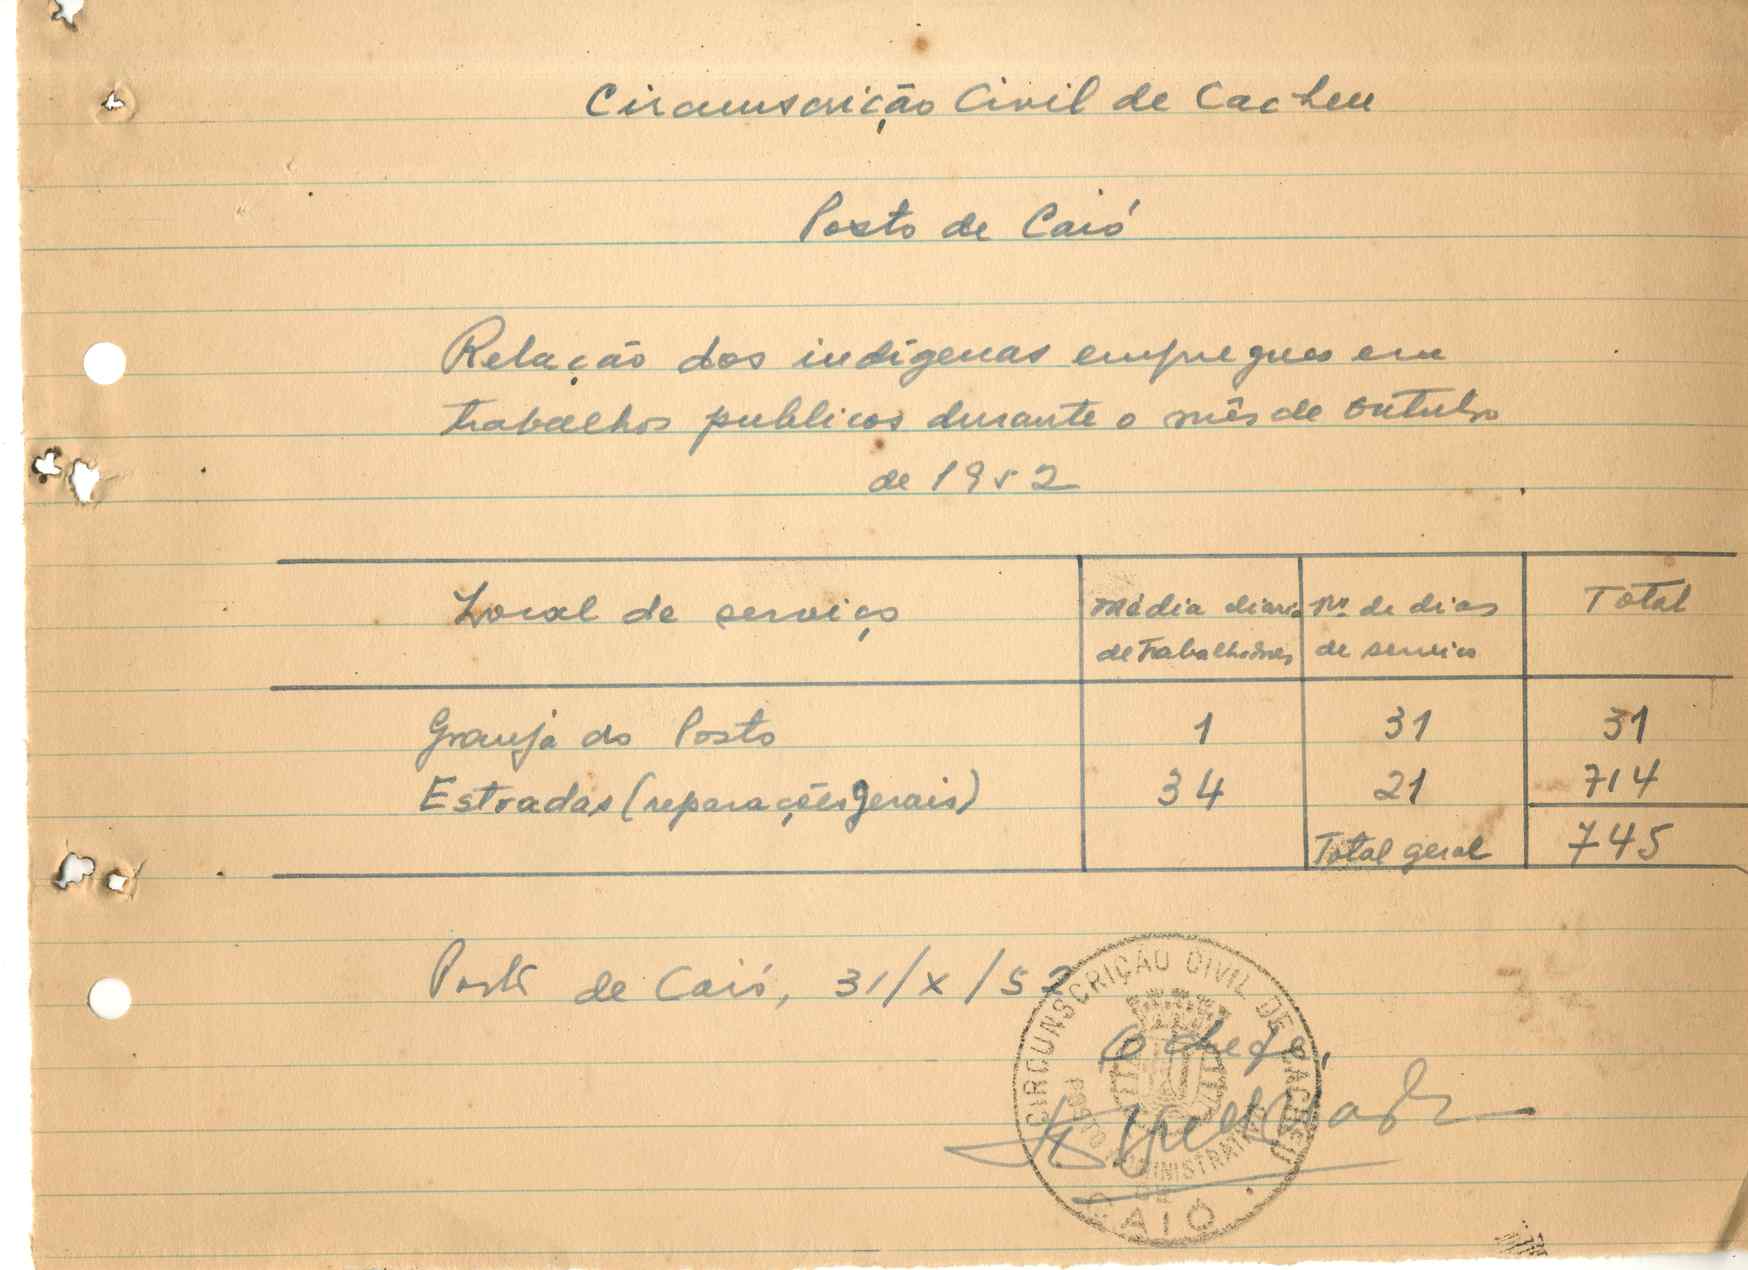 Circunscrição Civil de Cacheu
Posto de Caió
Relação dos indígenas empregues em
trabalhos publicos durante o mês de Outubro
de 1952
Local de serviço | Média diaria de trabalhadores | Nº de dias de serviço | Total
Granja do Posto 1 31 31
Estradas (reparações gerais) 34 21 714
Total geral 745
Posto de Caió, 31/X/52
O Chefe,
CIRCUNSCRIÇÃO CIVIL DE CACHEU
POSTO ADMINISTRATIVO
DE
CAIÓ